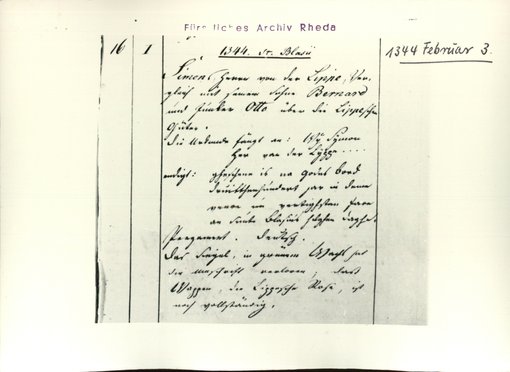 Fürstliches Archiv Rheda
16 1 1344. St. Blasii
1344 Februar 3.
Simons, Herrn von der Lippe, Ver-
gleich mit seinem Sohne Bernard
und Junker Otto über die Lippeschen
Güter.
Die Urkunde fängt an: Wy Symon
Her van der Lippe ....
endigt: gescheen is na godes bord
drüttheinhundert jar in deme
veer un vertigesten jare
an sunte Blasius daghe.
Pergament. Deutsch.
Das Siegel, in grünem Wachs hat
die Umschrift verloren, das
Wappen, die Lippesche Rose, ist
noch vollständig.